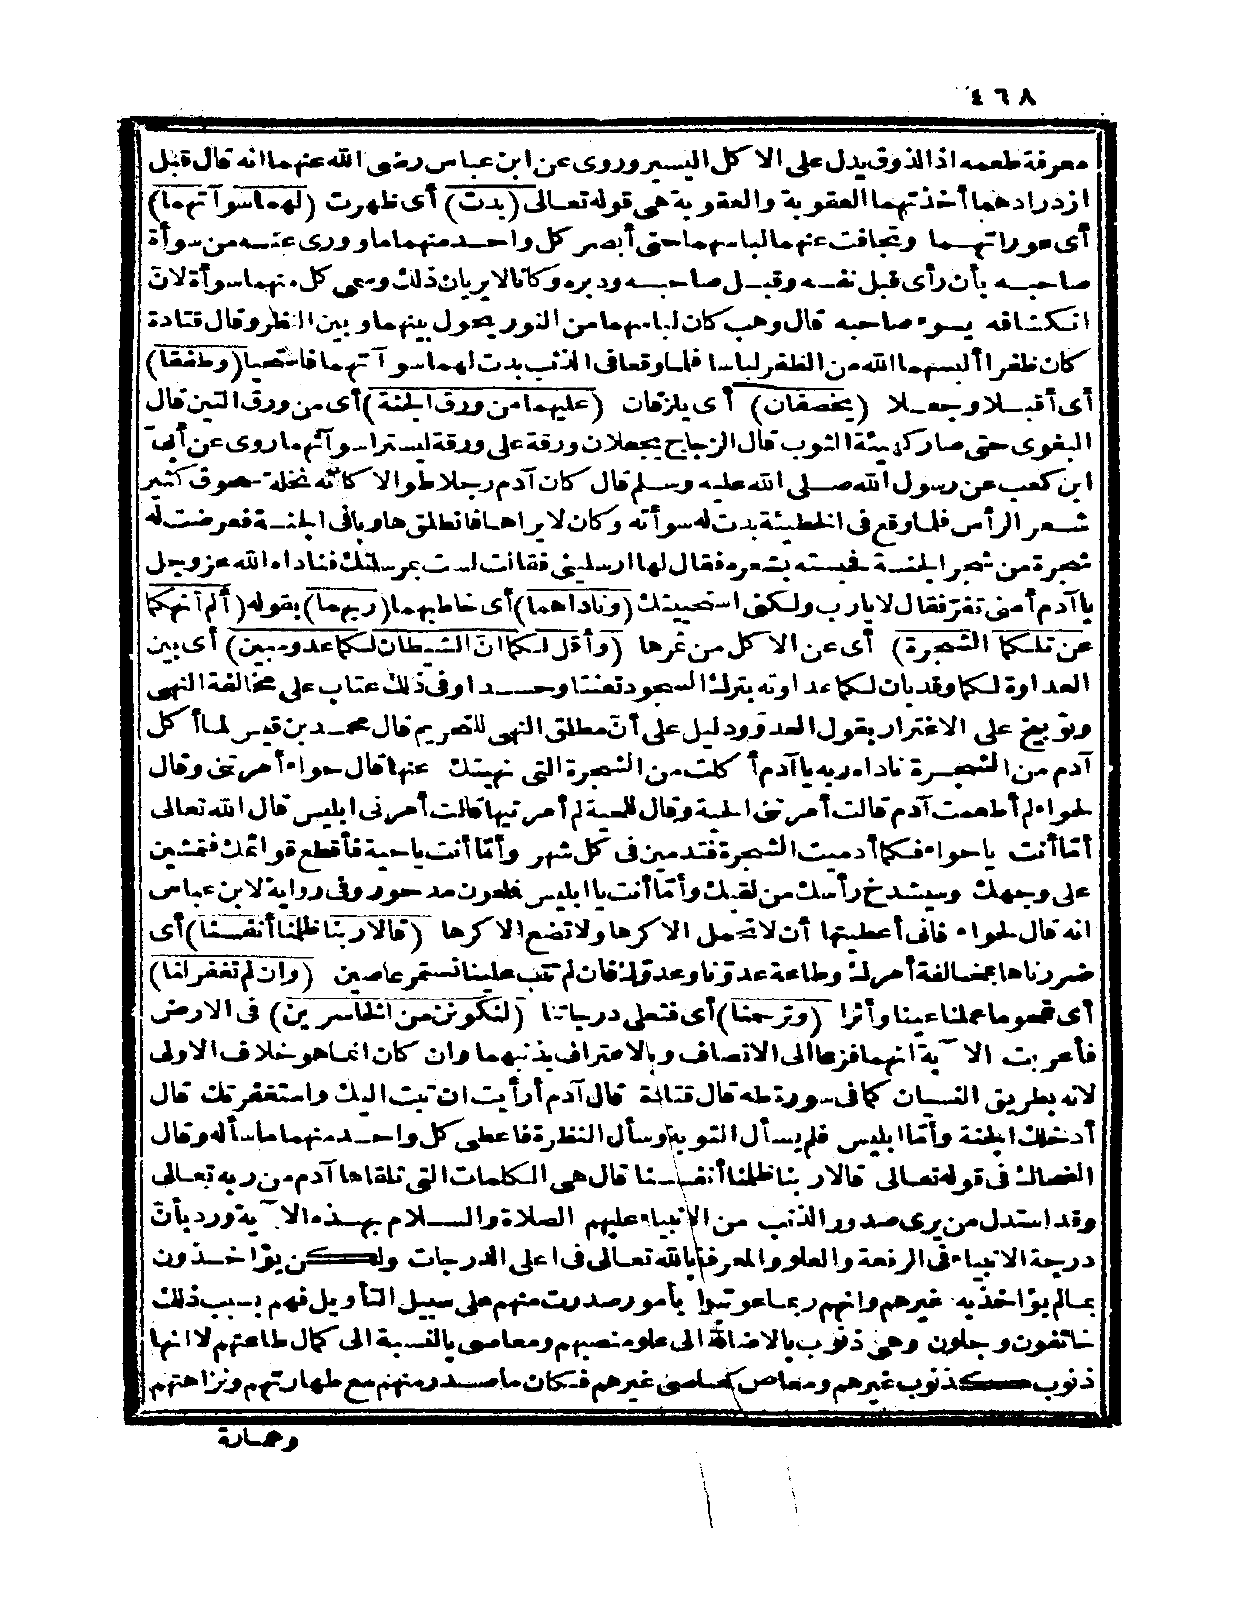 ٤٦٨
معرفة طعمه اذ الذوق يدل على الاكل اليسير وروى عن ابن عباس رضى الله عنهما انه قال قبل
ازدرادهما أخذتهما العقوبة والعقوبة هى قوله تعالى (بدت) أى ظهرت (لهما سوآتهما)
أى عوراتهما وتجافت عنهما لباسهما حتى أبصر كل واحد منهما ما وورى عنه من سوأة
صاحبه بأن رأى قبل نفسه وقبل صاحبه ودبره وكانا لا يريان ذلك وسمى كل منهما سوأة لانّ
انكشافه يسوء صاحبه قال وهب كان لباسهما من النور يحول بينهما وبين النظر وقال قتادة
كان ظفرا ألبسهما الله من الظفر لباسا فلما وقعا فى الذنب بدت لهما سوآتهما فاستحيا (وطفقا)
أى أقبلا وجعلا (يخصفان) أى يلزقان (عليهما من ورق الجنة) أى من ورق التين قال
البغوى حتى صار كهيئة الثوب قال الزجاج يجعلان ورقة على ورقة ليسترا سوآتهما روى عن أبىّ
ابن كعب عن رسول الله صلى الله عليه وسلم قال كان آدم رجلا طوالا كانّه نخلة سحوق كثير
شعر الرأس فلما وقع فى الخطيئة بدت له سوأته وكان لا يراها فانطلق هاربا فى الجنة فعرضت له
شجرة من شجر الجنة فحبسته بشعره فقال لها ارسلينى فقالت لست بمرسلتك فناداه الله عز وجل
يا آدم أمنى تفرّ فقال لا يا رب ولكنى استحييتك (وناداهما) أى خاطبهما (ربهما) بقوله (ألم أنهكما
عن تلكما الشجرة) أى عن الاكل من ثمرها (وأقل لكما انّ الشيطان لكما عدوّ مبين) أى بين
العداوة لكما وقد بان لكما عداوته بترك السجود تعنتا وحسدا وفى ذلك عتاب على مخالفة النهى
وتوبيخ على الاغترار بقول العدوّ ودليل على أنّ مطلق النهى للتحريم قال محمد بن قيس لما أكل
آدم من الشجرة ناداه ربه يا آدم أكلت من الشجرة التى نهيتك عنها قال حواء أمرتنى وقال
لحواء لم أطعمت آدم قالت أمرتنى الحية وقال للحية لم أمرتيها قالت أمرنى ابليس قال الله تعالى
أمّا أنت يا حواء فكما أدميت الشجرة فتدمين فى كل شهر وأمّا أنت يا حية فأقطع قوائمك فتمشين
على وجهك وسيشدخ رأسك من لقيك وأمّا أنت يا ابليس فلعون مدحور وفى رواية لابن عباس
انه قال لحواء فانى أعطيتها أن لا تحمل الا كرها ولا تضع الا كرها (قالا ربنا ظلمنا أنفسنا) أى
ضررناها بمخالفة أمرك وطاعة عدوّنا وعدوّك فان لم تتب علينا نستمر عاصين (وان لم تغفر لنا)
أى تمحو ما عملنا عينا وأثرا (وترحمنا) أى فتعلى درجاتنا (لنكوننّ من الخاسرين) فى الارض
فأعربت الآية انهما فزعا الى الانتصاف وبالاعتراف بذنبهما وان كان انما هو خلاف الاولى
لانه بطريق النسيان كما فى سورة طه قال قتادة قال آدم أرأيت ان تبت اليك واستغفرتك قال
أدخلك الجنة وأمّا ابليس فلم يسأل التوبة وسأل النظرة فاعطى كل واحد منهما ما سأله وقال
الضحاك فى قوله تعالى قالا ربنا ظلمنا أنفسنا قال هى الكلمات التى تلقاها آدم من ربه تعالى
وقد استدل من يرى صدور الذنب من الانبياء عليهم الصلاة والسلام بهذه الآية ورد بأنّ
درجة الانبياء فى الرفعة والعلو والمعرفة بالله تعالى فى اعلى الدرجات ولكن يؤاخذون
بما لم يؤاخذ به غيرهم وانهم ربما عوتبوا بأمور صدرت منهم على سبيل التأويل فهم بسبب ذلك
خائفون وجلون وهى ذنوب بالاضافة الى علو منصبهم ومعاصى بالنسبة الى كمال طاعتهم لا انها
ذنوب كذنوب غيرهم ومعاص كمعاصى غيرهم فكان ما صدر منهم مع طهارتهم ونزاهتهم
وعمارة